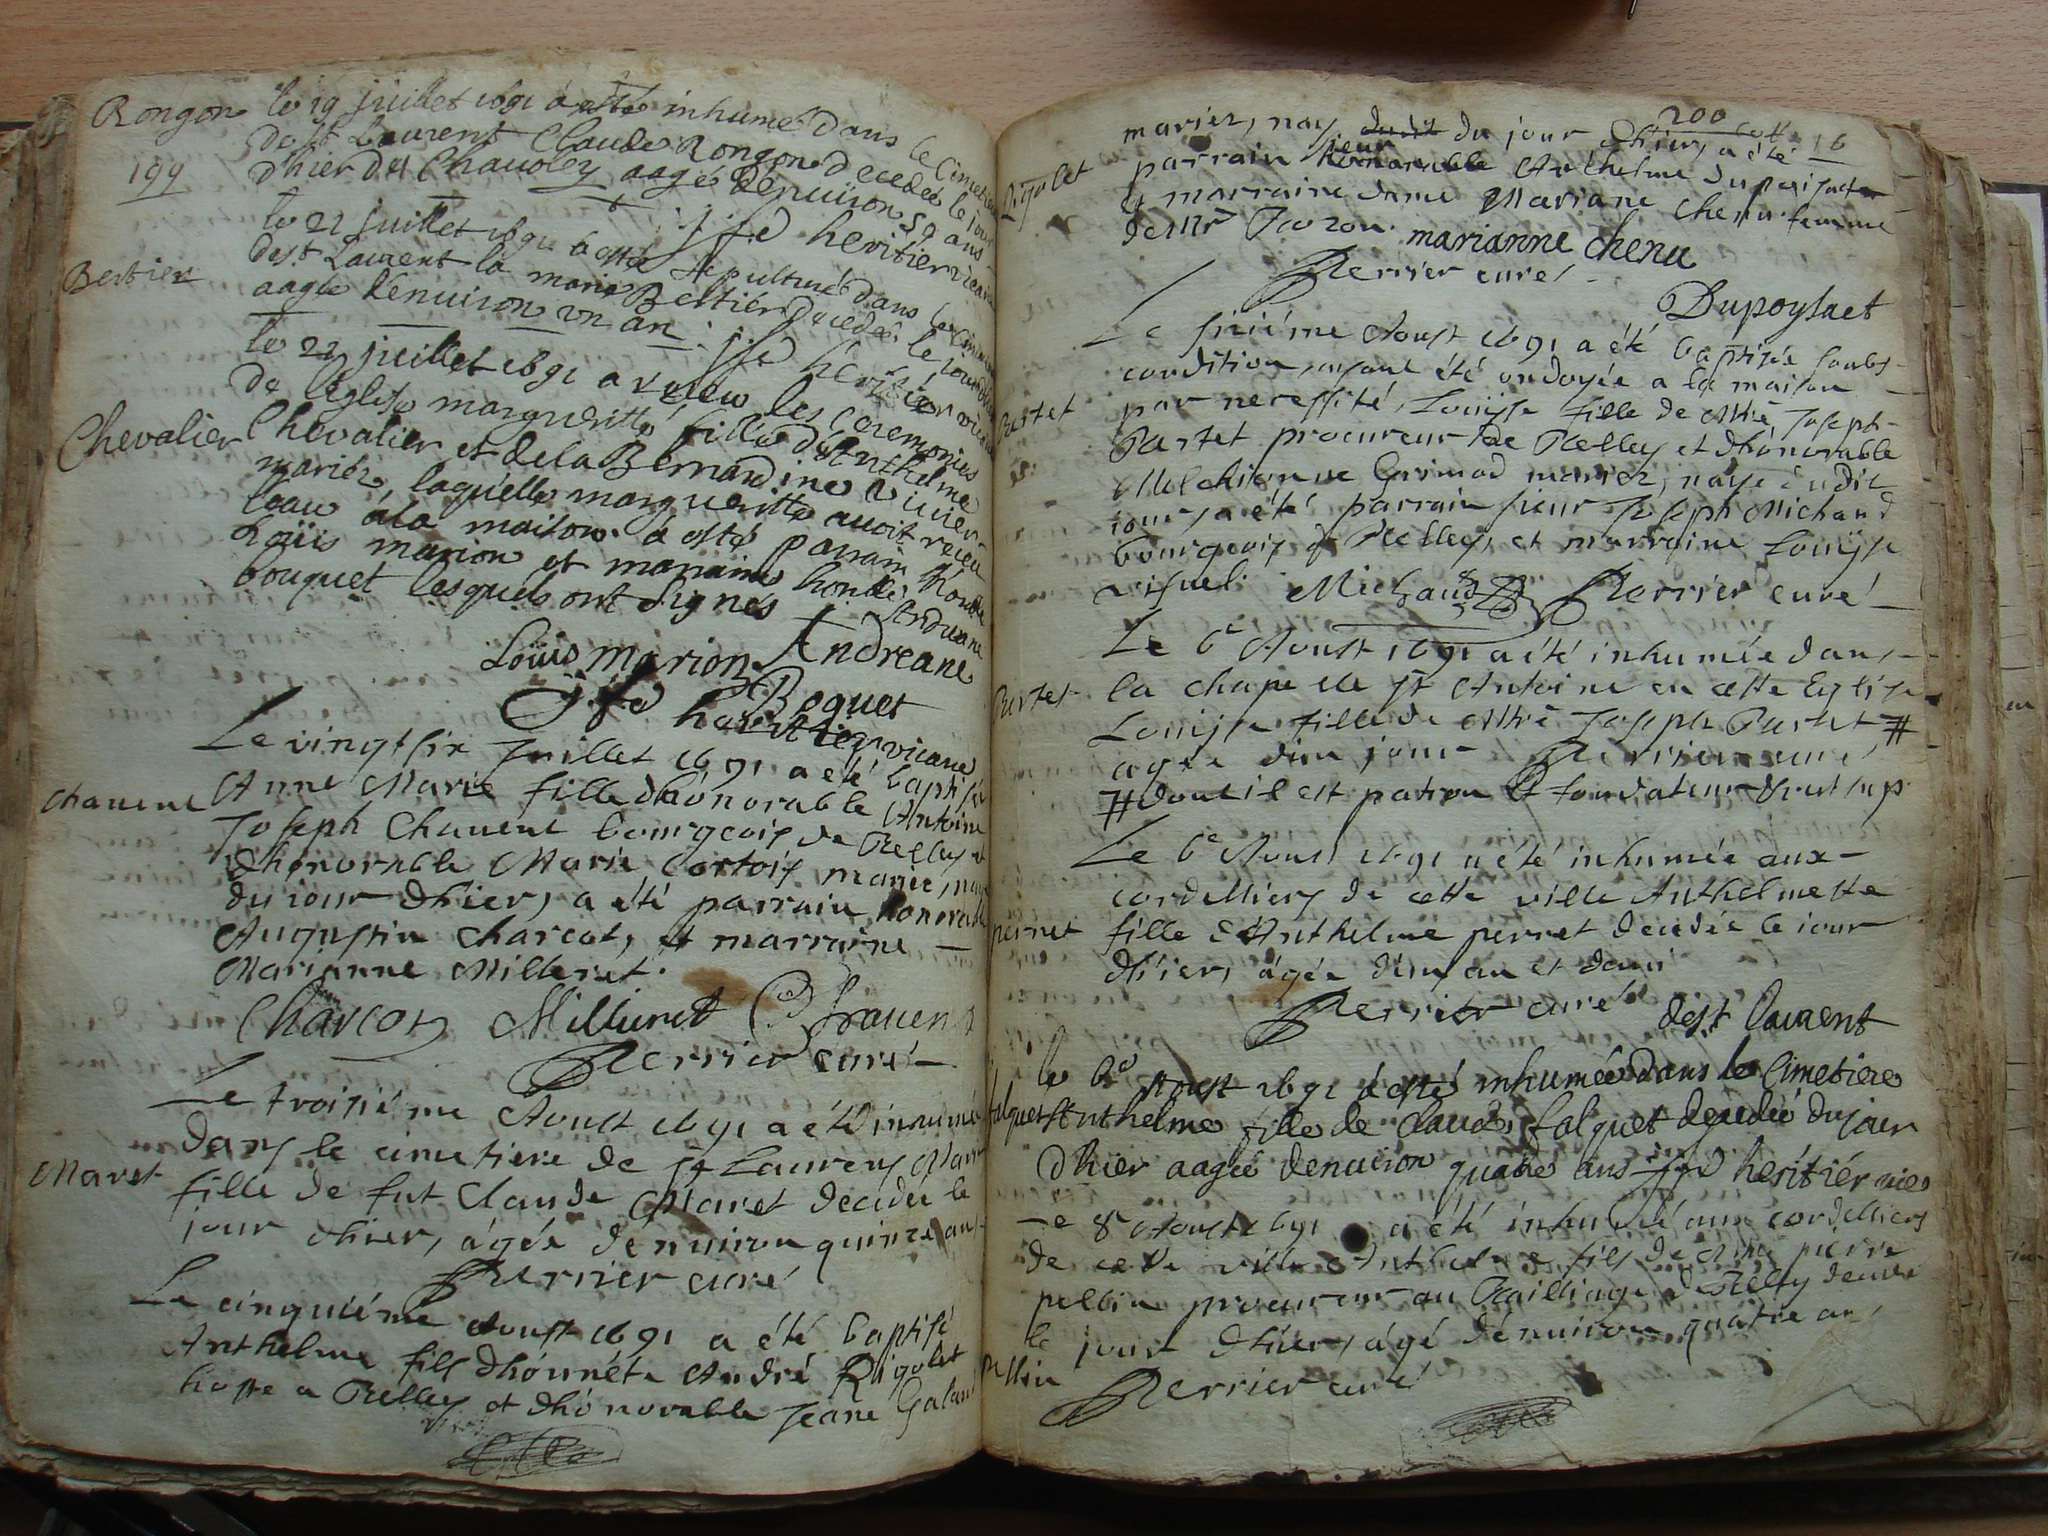 Rongon le 19 juillet 1691 a esté inhumé dans le Cimetiere
de st Laurent Claude Rongon decedé le jour
199
d'hier de Chauoley aagé d'enuiron 59 ans
heritier vicaire
le 21 juillet 1691 a esté sepulturé dans le Cimetiere
Bertier
de st Laurent la marie Bertier decedée le jour
aagée d'enuiron vn an
heritier vicaire
le 22 juillet 1691 a receu les Ceremonies
de l'Eglise margueritte fille d'Anthelme
Chevalier
Chevalier et de la Bernardine
mariéz, laquelle margueritte auoit receu
leau a la maison a esté parrain honble
Loüis marion et marraine honble Andreane
bouquet lesquels ont signés
Loüis marion Andreane
Boquet
heritier vicaire
Le vingtsix Juillet 1691 a été baptisée
Chauent
Anne Marie fille dhonorable Antoine
Joseph Chauent bourgeois de Belley et
dhonorable Marie Cortois mariez, naye
du iour dhier, a été parrain honorable
Augustin Charcot, et marraine
Marianne Milleret.
Charcot Milleret
Perrier curé
Le troisiéme Aoust 1691 a été inhumée
dans le cimetiere de st Laurens Marie
Maret
fille de fut Claude Maret decedée le
jour dhier, ágée denuiron quinze ans
Perrier curé
Le cinquiéme Aoust 1691 a été baptisé
Anthelme fils dhonnéte André Rigolet
hoste a Belley et dhonorable Jeane Galand
200
mariez, nay du jour dhier, a été
16
Rigolet
parrain sieur Anthelme
et marraine dame Mariane Chenu femme
de Mr
marianne chenu
Perrier curé
Dupoysaet
Le sixiéme Aoust 1691 a été baptisée soubs
condition, ayant été ondoyée a la maison
Partet
par necessité, Louïse fille de Mtre Joseph
Partet procureur de Belley et dhonorable
Melchionne Grimod mariez, naye dudit
iour, a été parrain sieur Joseph Michaud
bourgeois de Belley, et marraine Louïse
Michaud Perrier curé
Le 6e Aoust 1691 a été inhumée dans
Partet
la chapelle st Antoine en cette Eglise
Louïse fille de Mtre Joseph Partet #
agée d'un jour Perrier curé
# dont il est patron et fondateur
Le 6e Aoust 1691 a été inhumée aux
cordelliers de cette ville Anthelmette
perret
fille d'Anthelme perret decedée le iour
dhier, ágée d'un an et demi
Perrier curé
de st Laurent
le 6e Aoust 1691 a esté inhumée dans le Cimetiere
falquet
Anthelme fille de Claude falquet decedée du jour
dhier aagée denuiron quatre ans heritiér vic
Le 8e Aoust 1691 a été inhumé aux cordelliers
de cette ville Anthelme fils de Mtre pierre
pellin procureur au Bailliage de Belley decedé
le jour dhier, ágé denuiron quatre ans
pellin
Perrier curé